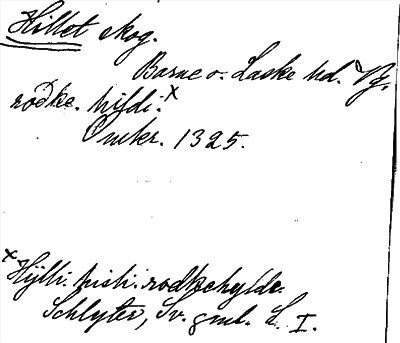 Hillet skog.
Barne o. Laske hd. Vg.
roðke. hildi.x
Omkr. 1325.
x Hylli. hisli. rodkehylde.
Schlyter, Sv. gml. L. I.